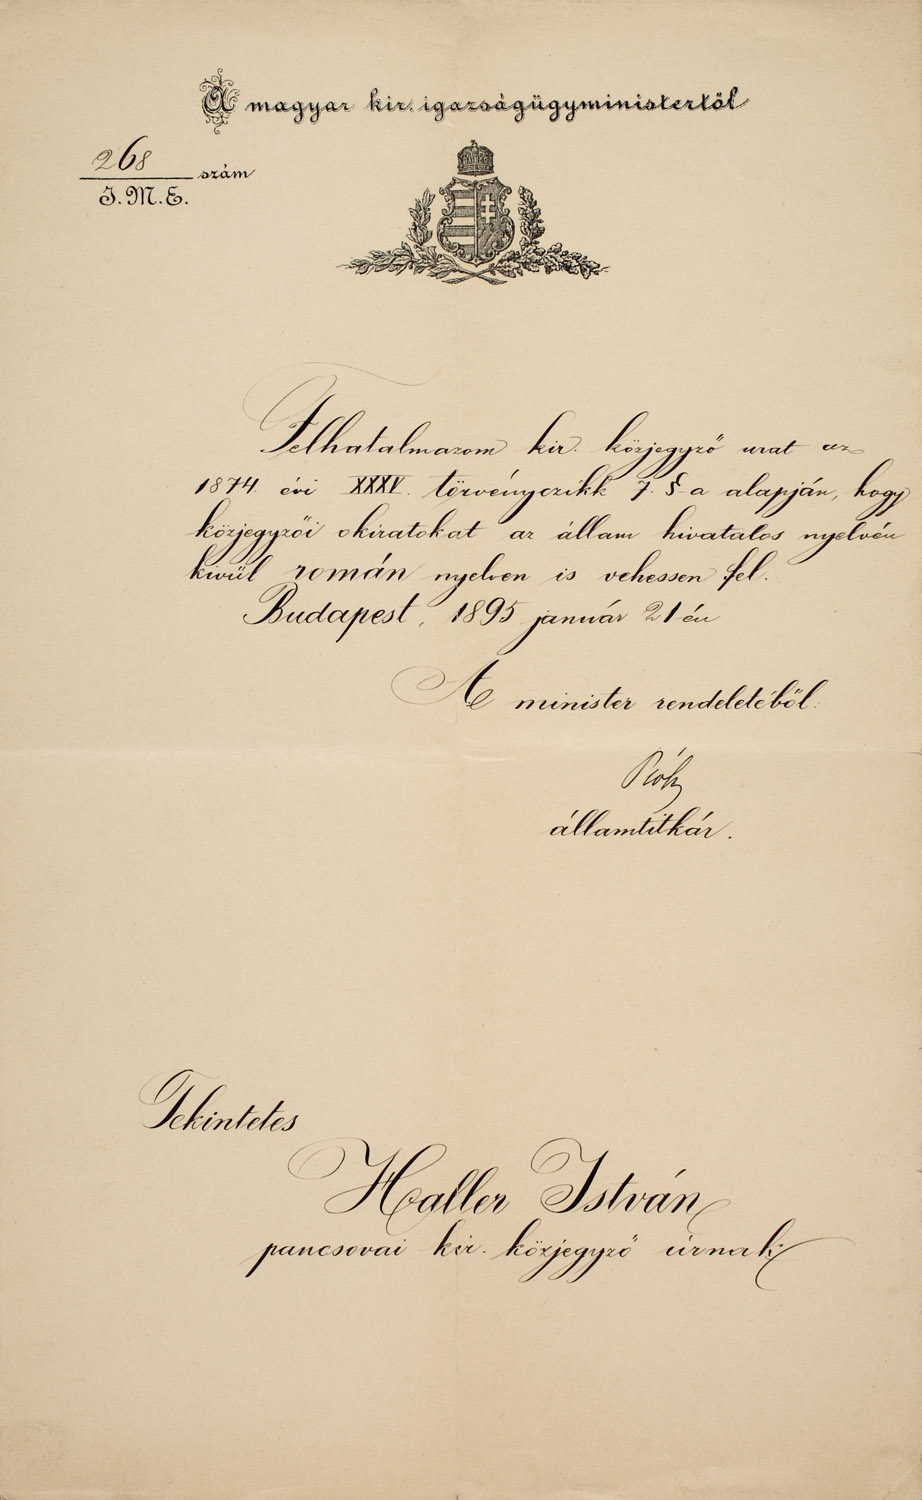 A magyar kir. igazságügyministertől
268 szám
I.M.E.
Felhatalmazom kir. közjegyző urat az
1874. évi XXXV. törvényczikk 7. §-a alapján, hogy
közjegyzői okiratokat az állam hivatalos nyelvén
kivül román nyelven is vehessen fel.
Budapest, 1895 január 21-én
A minister rendeletéből:
államtitkár.
Tekintetes
Haller István
pancsovai kir. közjegyző úrnak